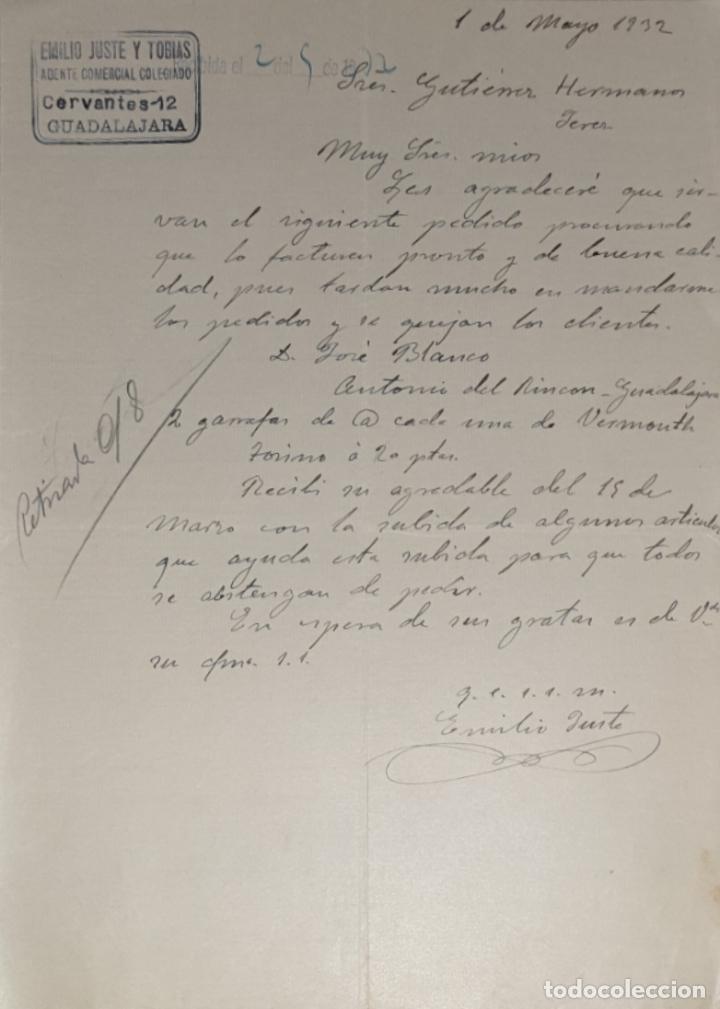 1 de Mayo 1932
EMILIO JUSTE Y TOBIAS
AGENTE COMERCIAL COLEGIADO
Cervantes-12
GUADALAJARA
el 2 del 5 de 1932
Sres. Gutiérrez Hermanos
Jerez
Muy Sres. mios
Les agradeceré que sir-
van el siguiente pedido procurando
que lo facturen pronto y de buena cali-
dad, pues tardan mucho en mandarme
los pedidos y se quejan los clientes.
D. José Blanco
Antonio del Rincon - Guadalajara
2 garrafas de @ cada una de Vermouth
Torino á 20 ptas.
Recibi su agradable del 15 de
Marzo con la subida de algunos articulos
que ayuda esta subida para que todos
se abstengan de pedir.
En espera de sus gratas es de Vds
su afmo. s.s.
q. e. s. s. m.
Emilio Juste
Retirada 0/8
todocoleccion